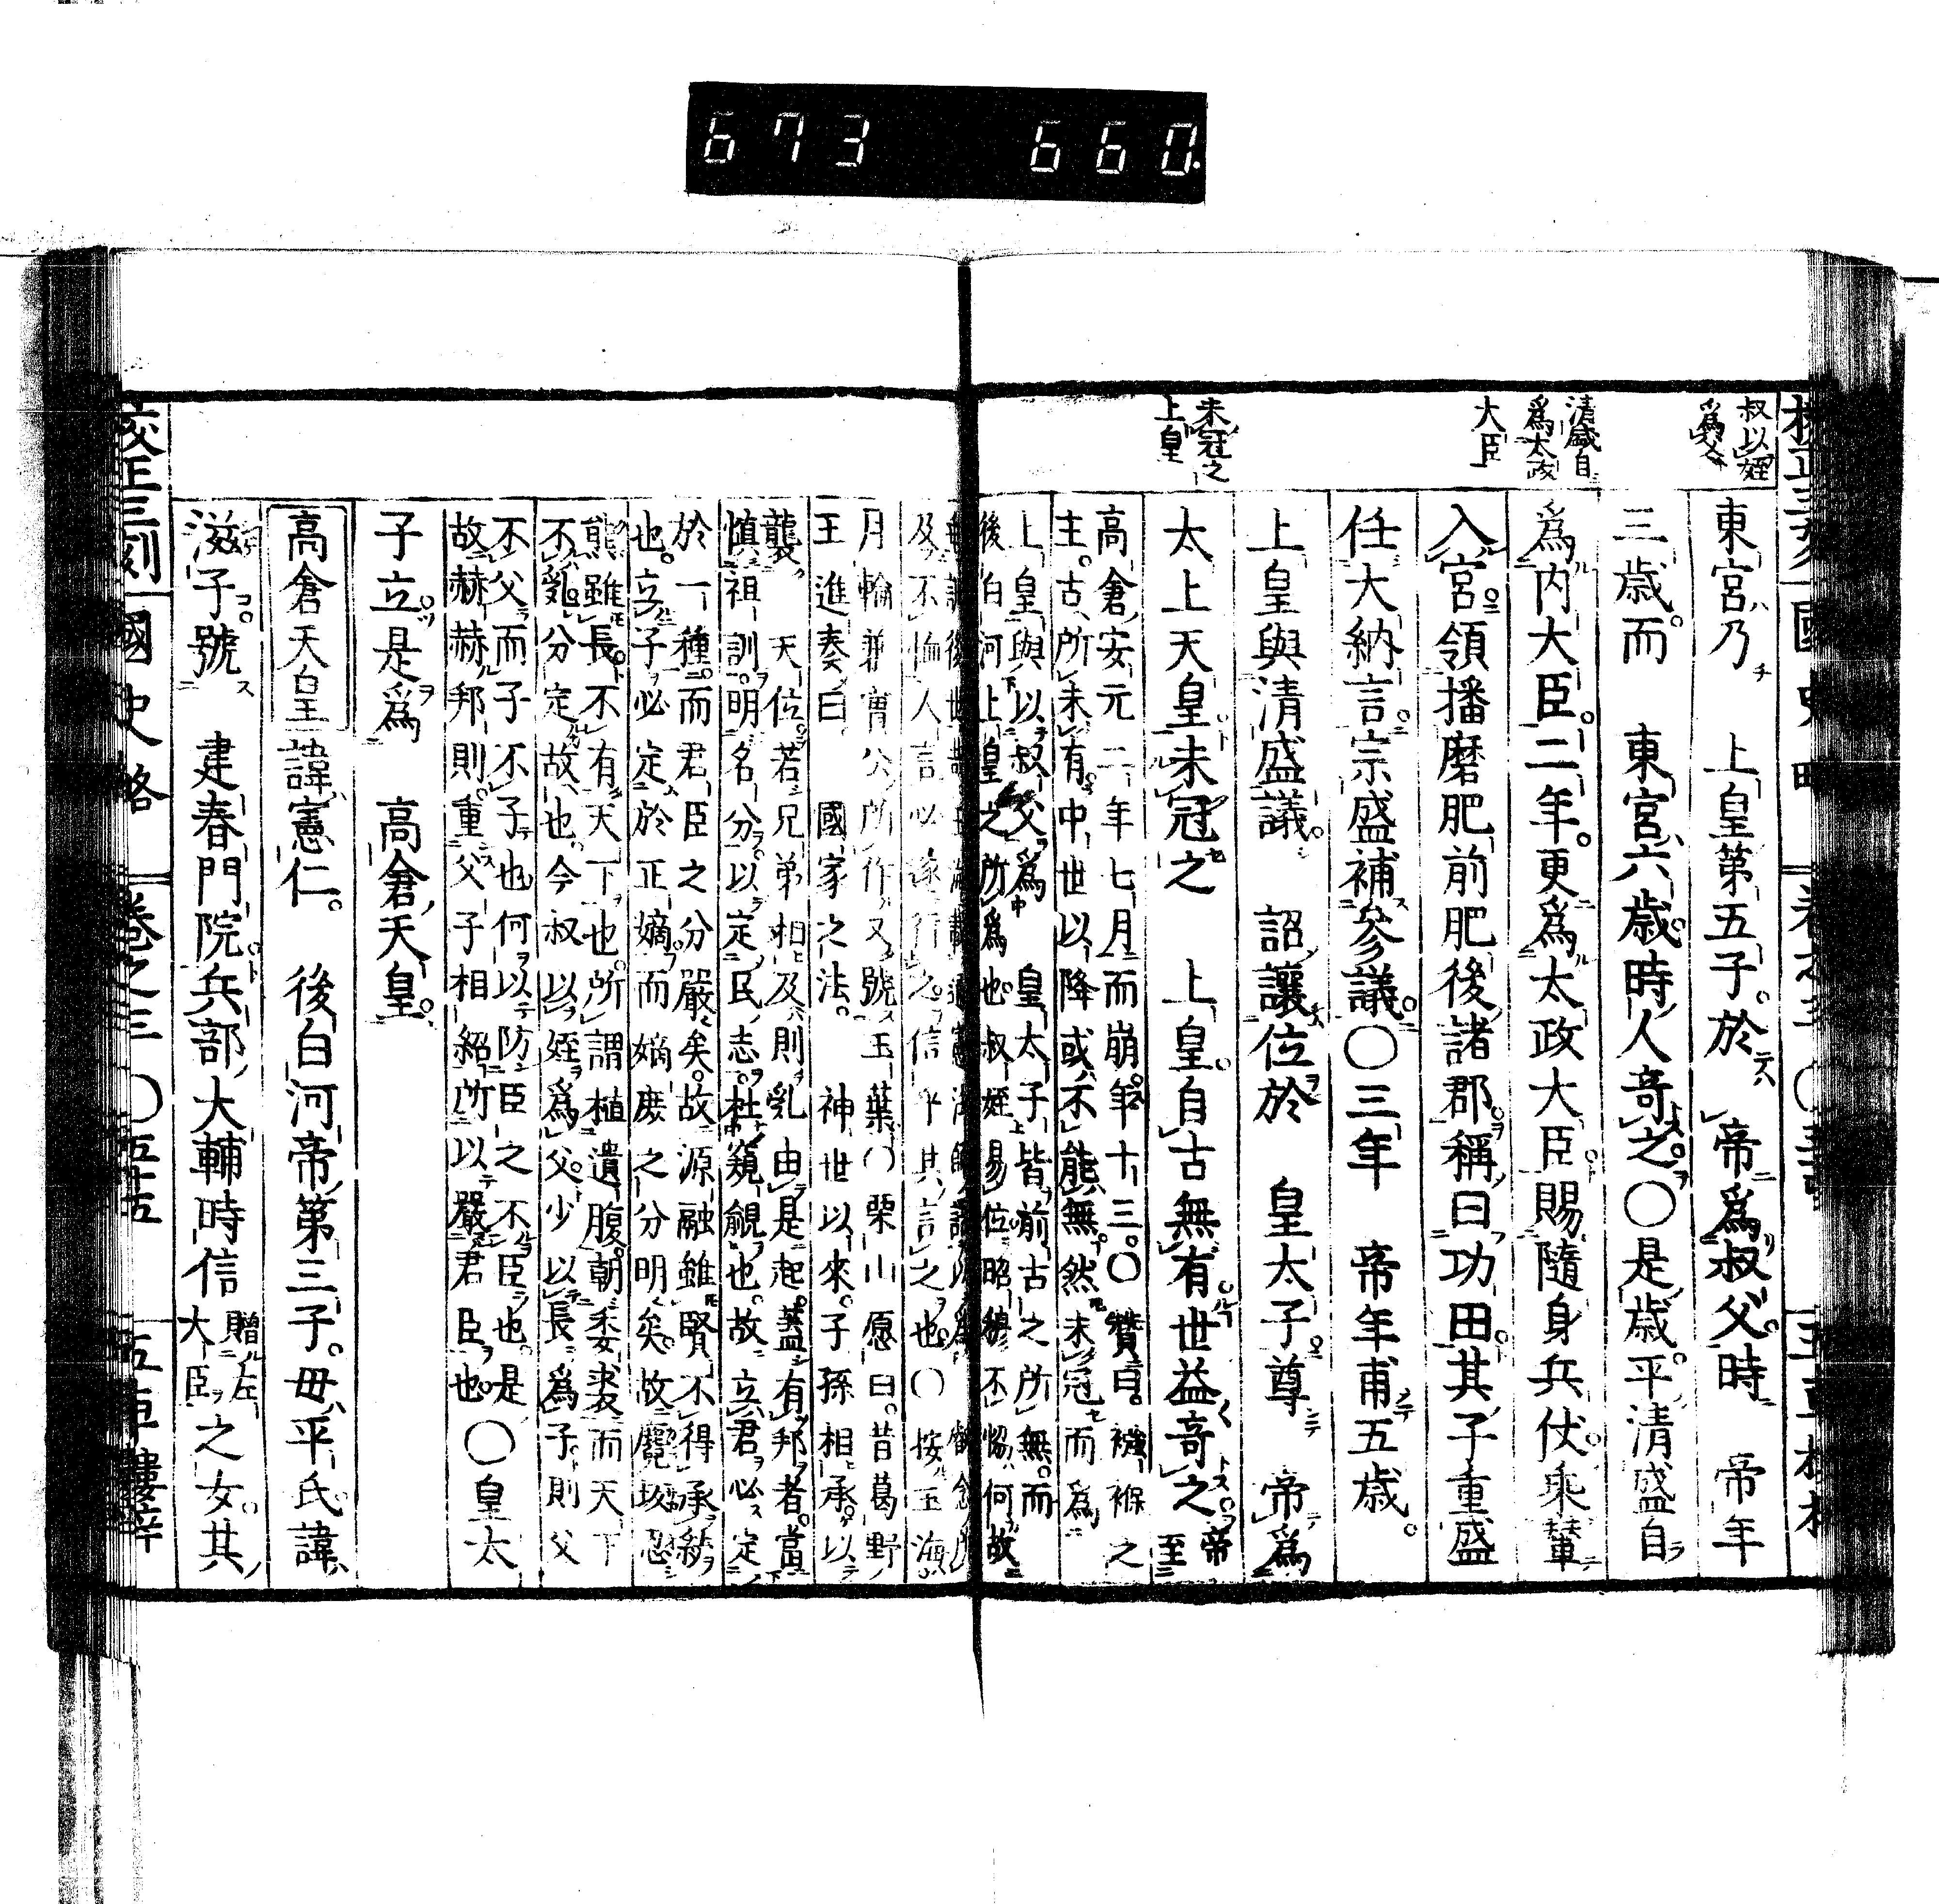 673 660.
叔以姪
爲父
清盛自
爲太政
大臣
未冠之
上皇
東宮乃 上皇第五子於 帝爲叔父時 帝年
三歳而 東宮六歳時人奇之〇是歳平清盛自
爲内大臣二年更爲太政大臣賜隨身兵仗乘輦
入宮領播磨肥前肥後諸郡稱曰功田其子重盛
任大納言宗盛補參議〇三年 帝年甫五歳
上皇與清盛議 詔讓位於 皇太子尊 帝爲
太上天皇未冠之 上皇自古無有世益奇之帝
至
高倉安元二年七月而崩年十三〇贊曰襁褓之
主古所未有中世以降或不能無然未冠而爲
上皇與以叔父爲 皇太子皆前古之所無而
後白河上皇之所爲也叔姪易位昭穆不惱何故
及不恤人言必遂行之信乎其言之也〇按玉海
月輪兼實公所作又號玉葉〇栗山愿曰昔葛野
王進奏曰 國家之法 神世以來子孫相承以
襲 天位若兄弟相及則亂由是起蓋有邦者當
愼祖訓明名分以定民志杜窺覦也故立君必定
於一種而君臣之分嚴矣故源融雖賢不得承統
也立子必定於正嫡而嫡庶之分明矣故麑坂忍
熊雖長不有天下也所謂植遺腹朝委裘而天下
不亂分定故也今叔以姪爲父少以長爲子則父
不父而子不子也何以防臣之不臣也是
故赫赫邦則重父子相紹所以嚴君臣也〇皇太
子立是爲 高倉天皇
高倉天皇諱憲仁 後白河帝第三子母平氏諱
滋子號 建春門院兵部大輔時信贈左
大臣之女其
校正三刻 國史略 卷之三 〇五十五 五車樓梓